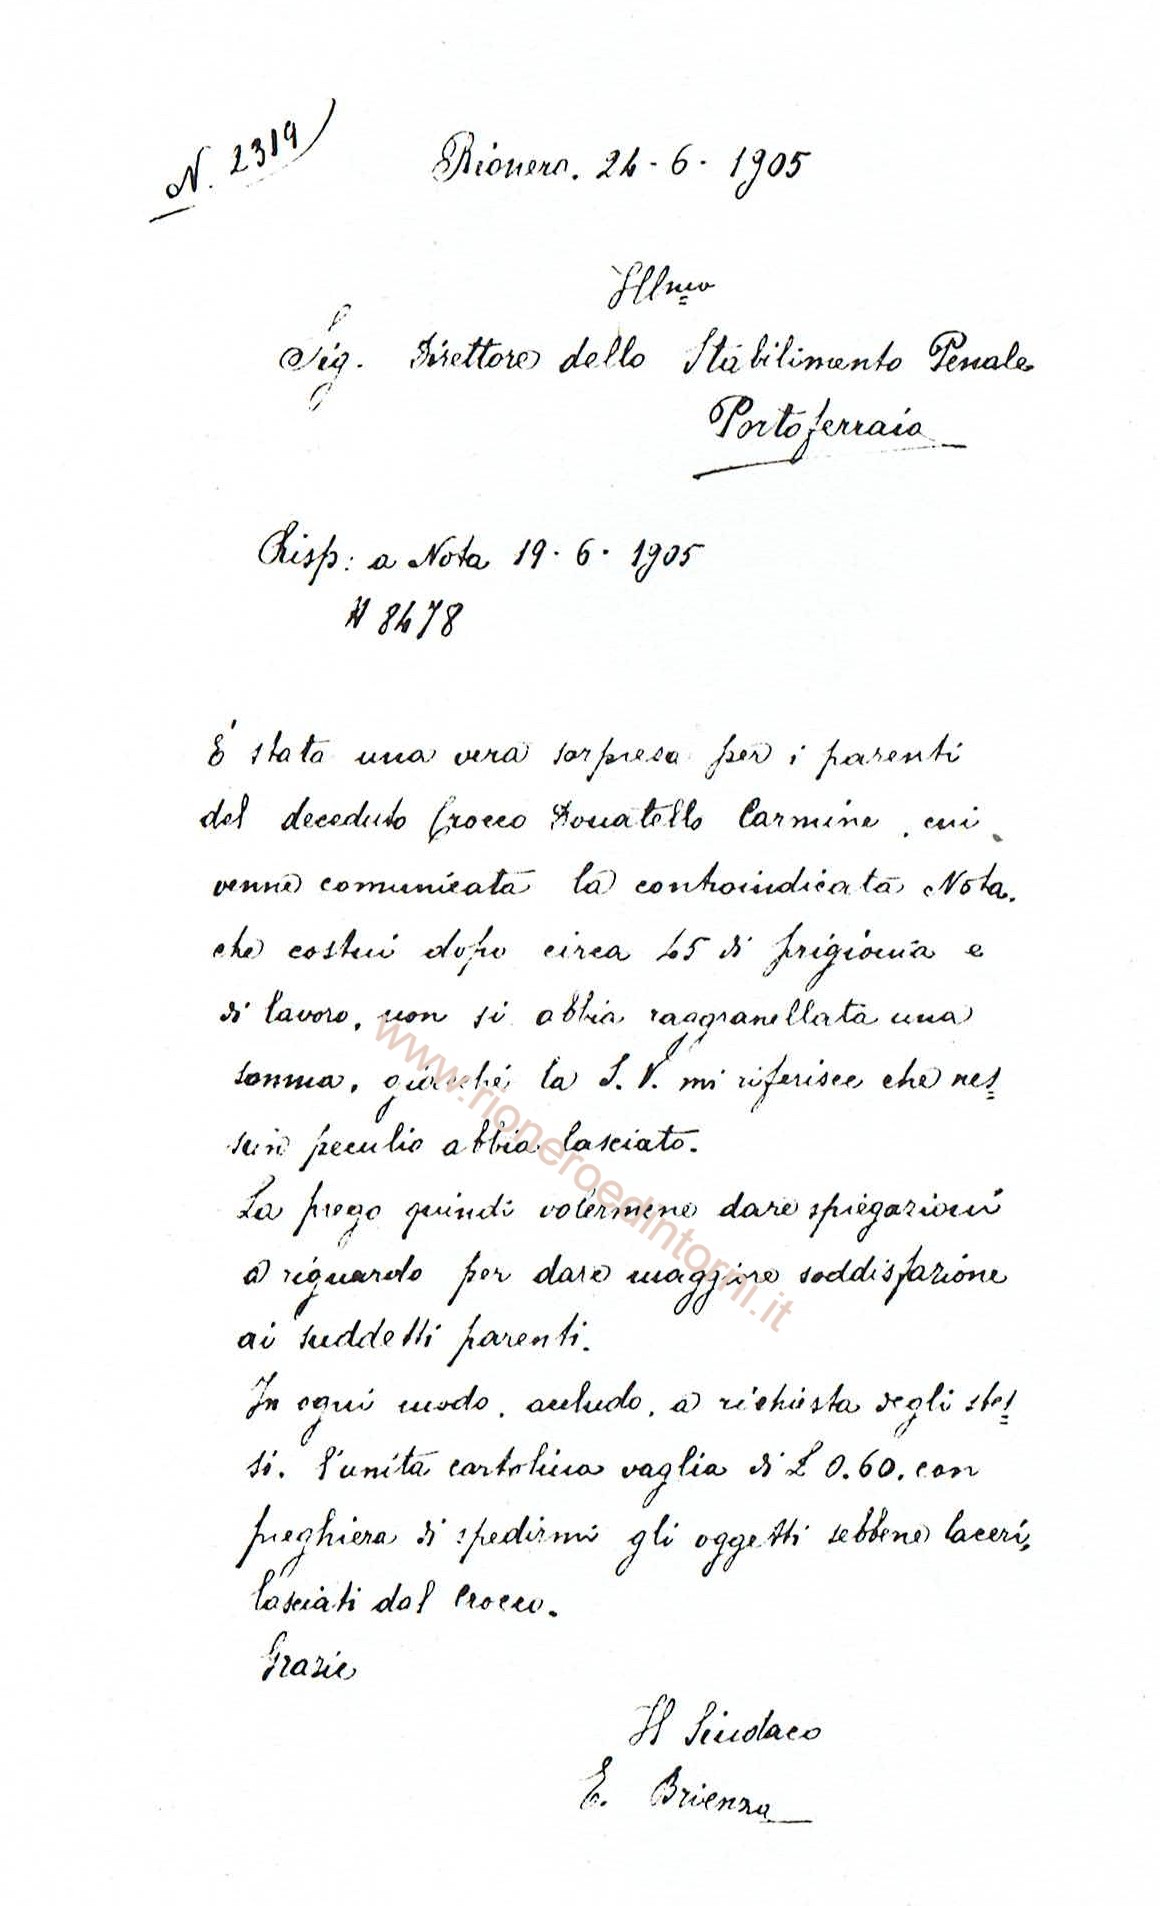 N. 2319
Rionero. 24 - 6 - 1905
Illmo
Sig. Direttore dello Stabilimento Penale
Portoferraio
Risp: a Nota 19 - 6 - 1905
N 8478
È stata una vera sorpresa per i parenti
del deceduto Crocco Donatello Carmine, cui
venne comunicata la controindicata Nota,
che costui dopo circa 45 di prigionia e
di lavoro, non si abbia raggranellata una
somma, giacché la S. V. mi riferisce che nes=
sun peculio abbia lasciato.
La prego quindi volermene dare spiegazioni
a riguardo per dare maggiore soddisfazione
ai suddetti parenti.
In ogni modo, accludo, a richiesta degli stes=
si, l'unita cartolina vaglia di L 0.60. con
preghiera di spedirmi gli oggetti sebbene laceri,
lasciati dal Crocco.
Grazie
Il Sindaco
E. Brienza
www.rioneroedintorni.it